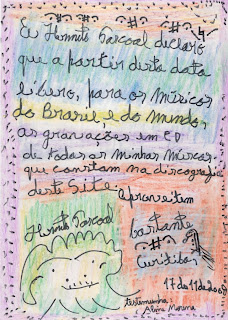 Eu Hermeto Pascoal declaro
que a partir desta data
libero, para os Músicos
do Brasil e do mundo,
as gravações em CD
de todas as minhas Músicas
que constam na discografia
deste Site.
Aproveitem
bastante
Hermeto Pascoal
Curitiba
17 de 11 de
testemunha
Aline Morena